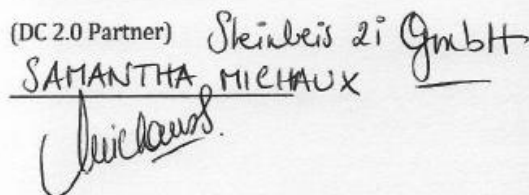 (DC 2.0 Partner) Steinbeis 2i GmbH
SAMANTHA MICHAUX
Michaux